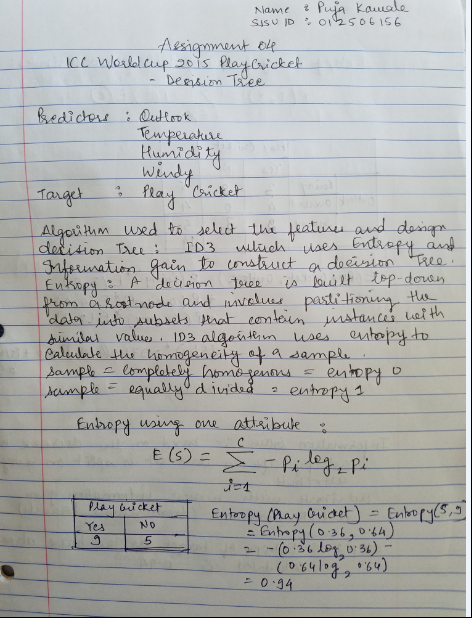 Name : Puja Kawale
SJSU ID : 012506156
Assignment 04
ICC WorldCup 2015 PlayCricket
- Decision Tree
Predictors : Outlook
Temperature
Humidity
Windy
Target : Play Cricket
Algorithm used to select the features and design
decision Tree : ID3 which uses Entropy and
Information Gain to construct a decision Tree.
Entropy : A decision tree is built top-down
from a root node and involves partitioning the
data into subsets that contain instances with
similar values. ID3 algorithm uses entropy to
calculate the homogeneity of a sample.
sample = completely homogenous = entropy 0
sample = equally divided = entropy 1
Entropy using one attribute :
E(S) = \sum_{i=1}^{c} - p_i log_2 p_i
Play Cricket
Yes No
9 5
Entropy (Play Cricket) = Entropy(5,9)
= Entropy (0.36, 0.64)
= -(0.36 log_2 0.36) -
(0.64 log_2 0.64)
= 0.94